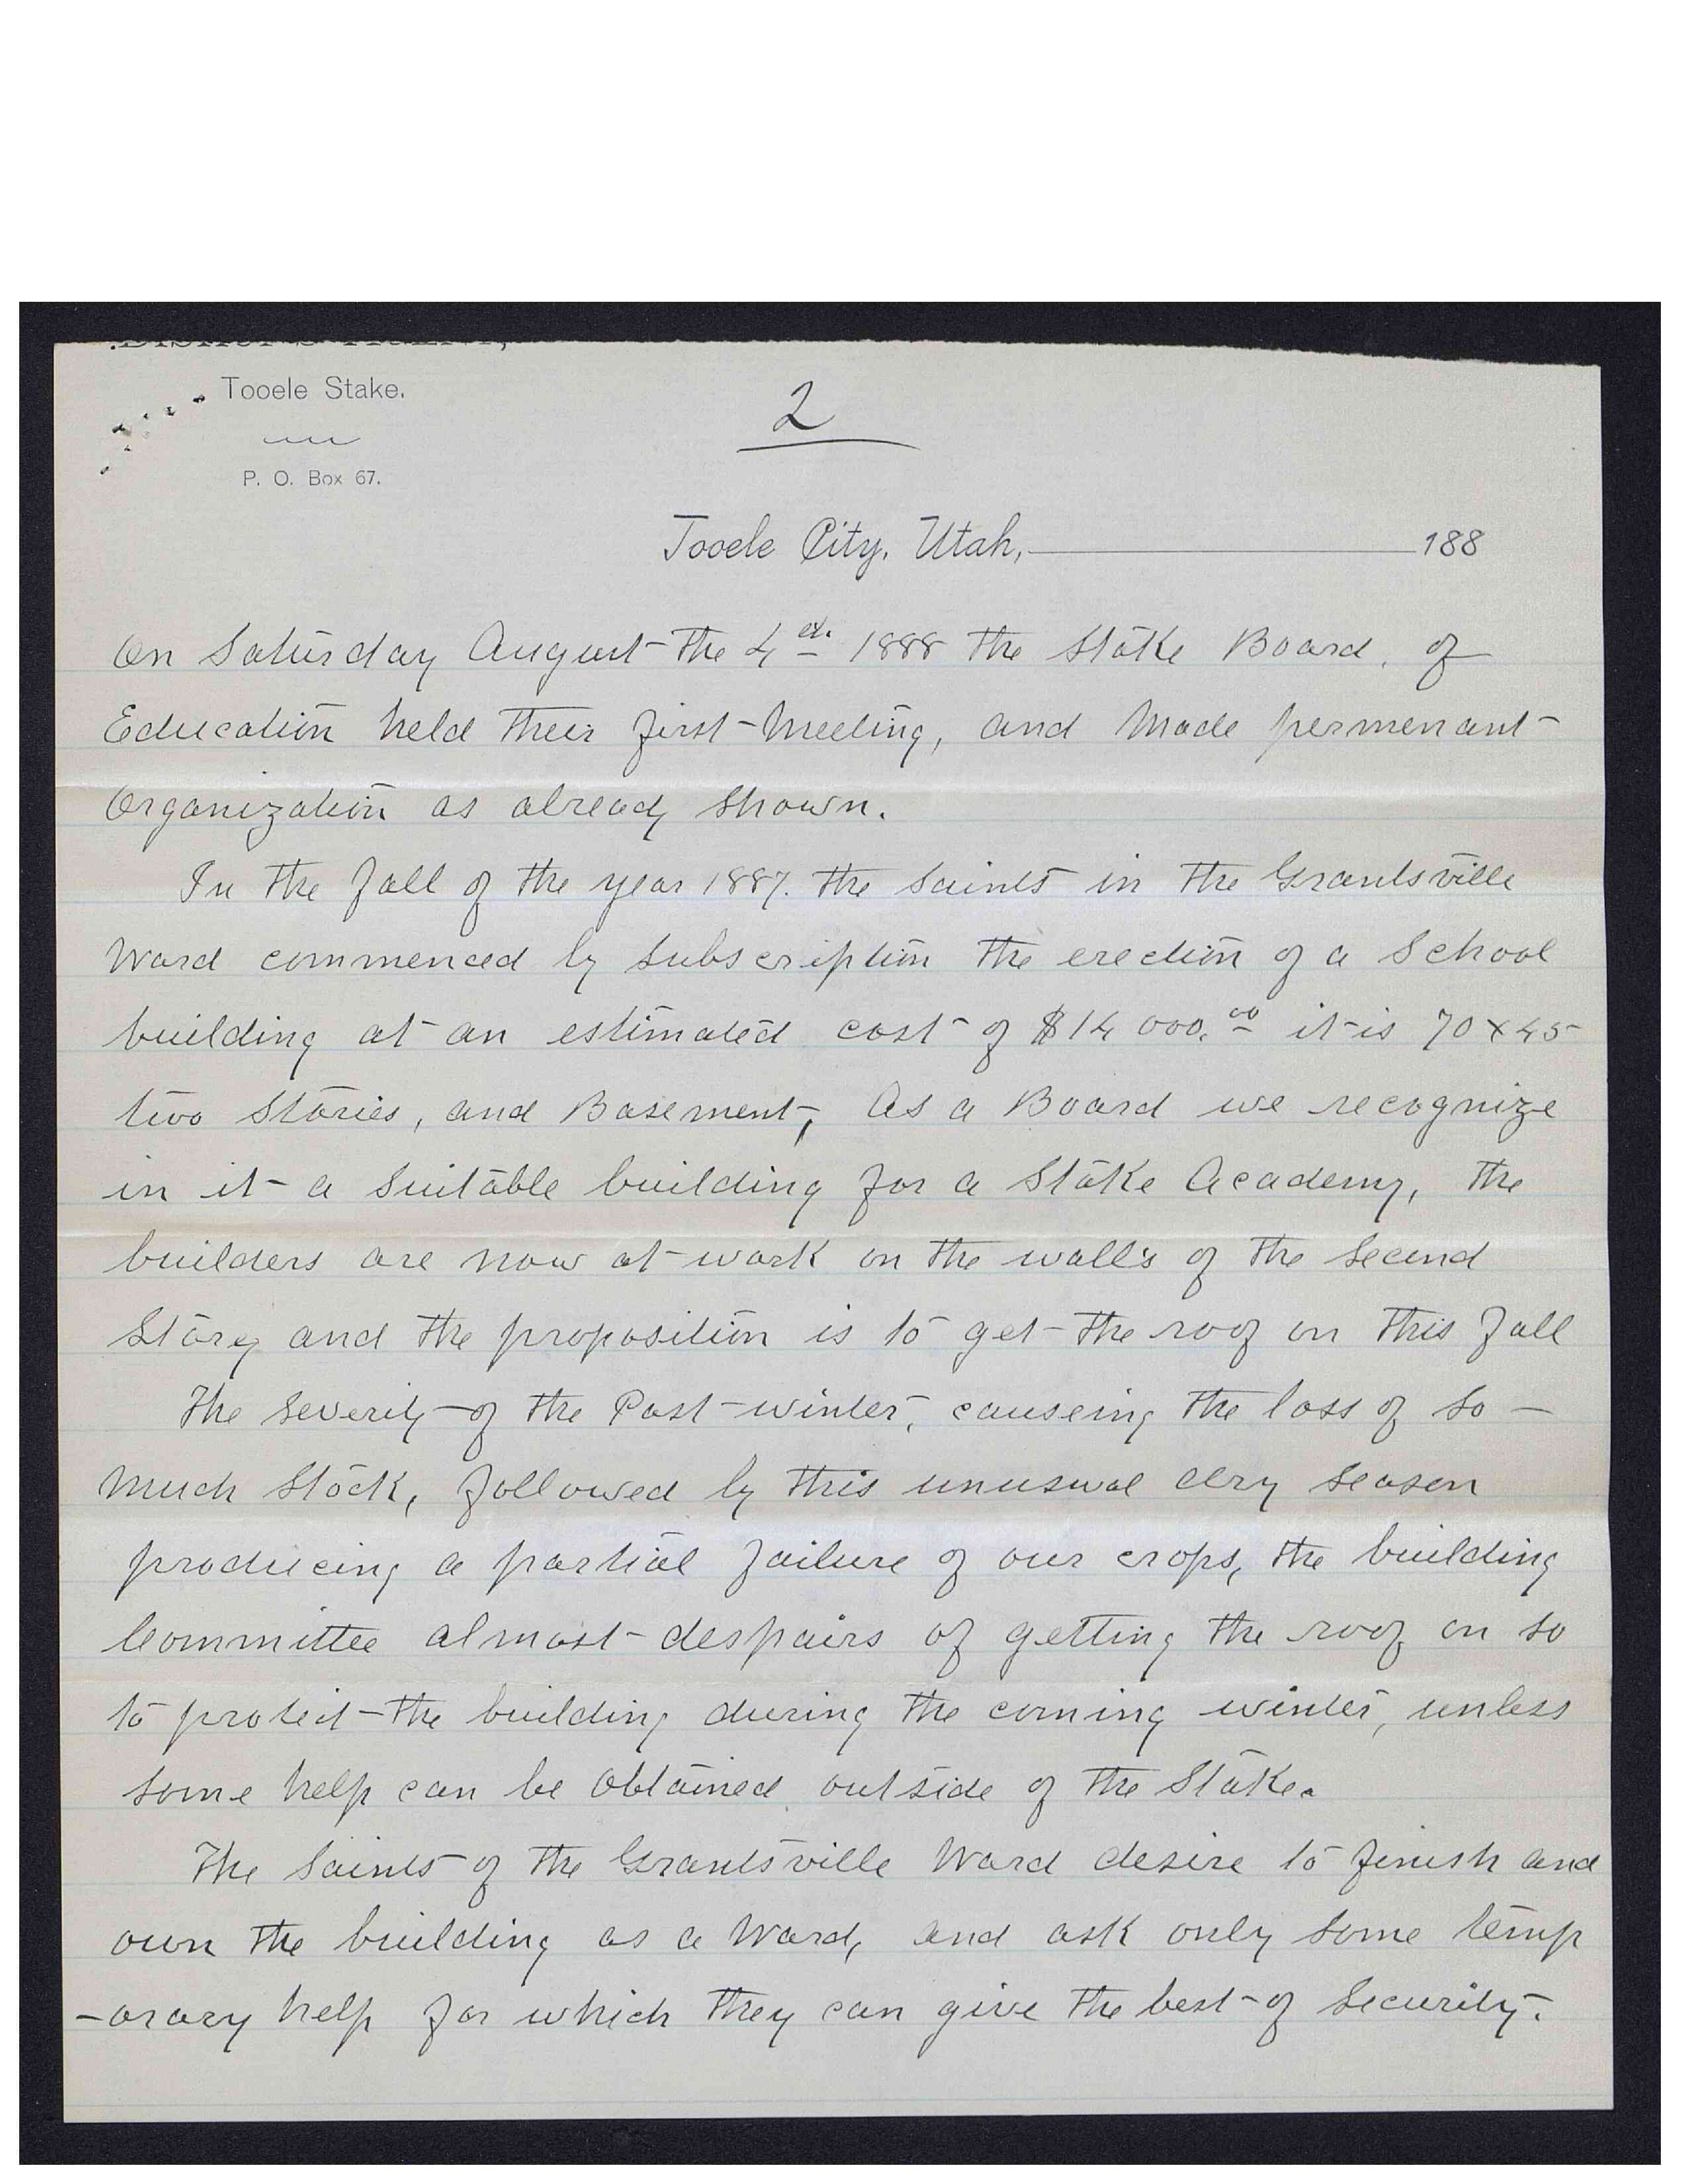 Tooele Stake.
2
P. O. Box 67.
Tooele City, Utah, 188
On Saturday August the 4th 1888 the Stake Board, of
Education held their first Meeting, and Made permenant
Organization as already shown.
In the fall of the year 1887. the Saints in the Grantsville
Ward commenced by subscription the erection of a School
building at an estimated cost of $14 000.00 it is 70 x 45
two Stories, and Basement, As a Board we recognize
in it a suitable building for a Stake Academy, the
builders are now at work on the walls of the second
Story and the proposition is to get the roof on this fall
The severity of the Past winter, causeing the loss of so
much Stock, followed by this unusual dry season
producing a partial failure of our crops, the building
Committee almost despairs of getting the roof on so
to protect the building during the coming winter, unless
some help can be obtained outside of the Stake.
The Saints of the Grantsville Ward desire to finish and
own the building as a Ward, and ask only some temp
-orary help for which they can give the best of Security.